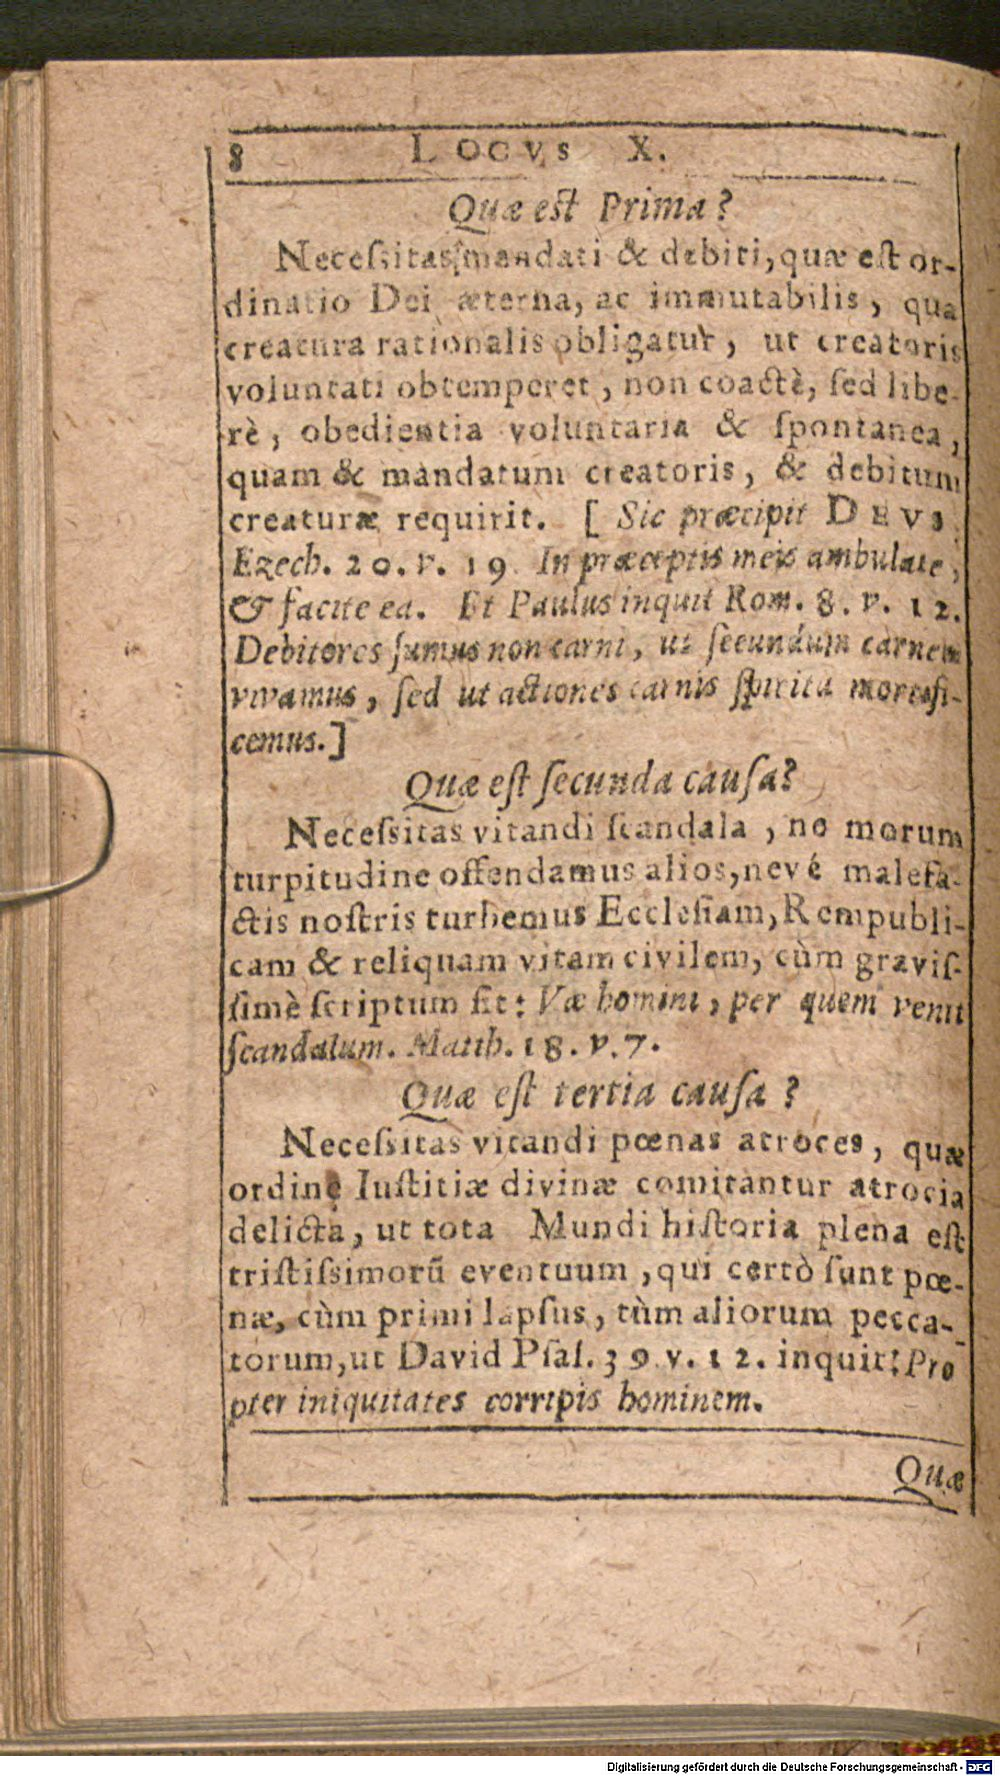 8 LOCVS X.
Quæ est Prima?
Necessitas mandati & debiti, quæ est or-
dinatio Dei æterna, ac immutabilis, qua
creatura rationalis obligatur, ut creatoris
voluntati obtemperet, non coactè, sed libe-
rè, obedientia voluntaria & spontanea,
quam & mandatum creatoris, & debitum
creaturæ requirit. [ Sic præcipit DEVS
Ezech. 20. v. 19 In præceptis meis ambulate,
& facite ea. Et Paulus inquit Rom. 8. v. 12.
Debitores sumus non carni, ut secundum carnem
vivamus, sed ut actiones carnis spiritu mortifi-
cemus.]
Quæ est secunda causa?
Necessitas vitandi scandala, ne morum
turpitudine offendamus alios, nevé malefa-
ctis nostris turbemus Ecclesiam, Rempubli-
cam & reliquam vitam civilem, cùm gravis-
simè scriptum sit: Væ homini, per quem venit
scandalum. Matth. 18. v. 7.
Quæ est tertia causa?
Necessitas vitandi pœnas atroces, quæ
ordine Iustitiæ divinæ comitantur atrocia
delicta, ut tota Mundi historia plena est
tristissimorū eventuum, qui certò sunt pœ-
næ, cùm primi lapsus, tùm aliorum pecca-
torum, ut David Psal. 39 v. 12. inquit: Pro-
pter iniquitates corripis hominem.
Quæ
Digitalisierung gefördert durch die Deutsche Forschungsgemeinschaft - DFG